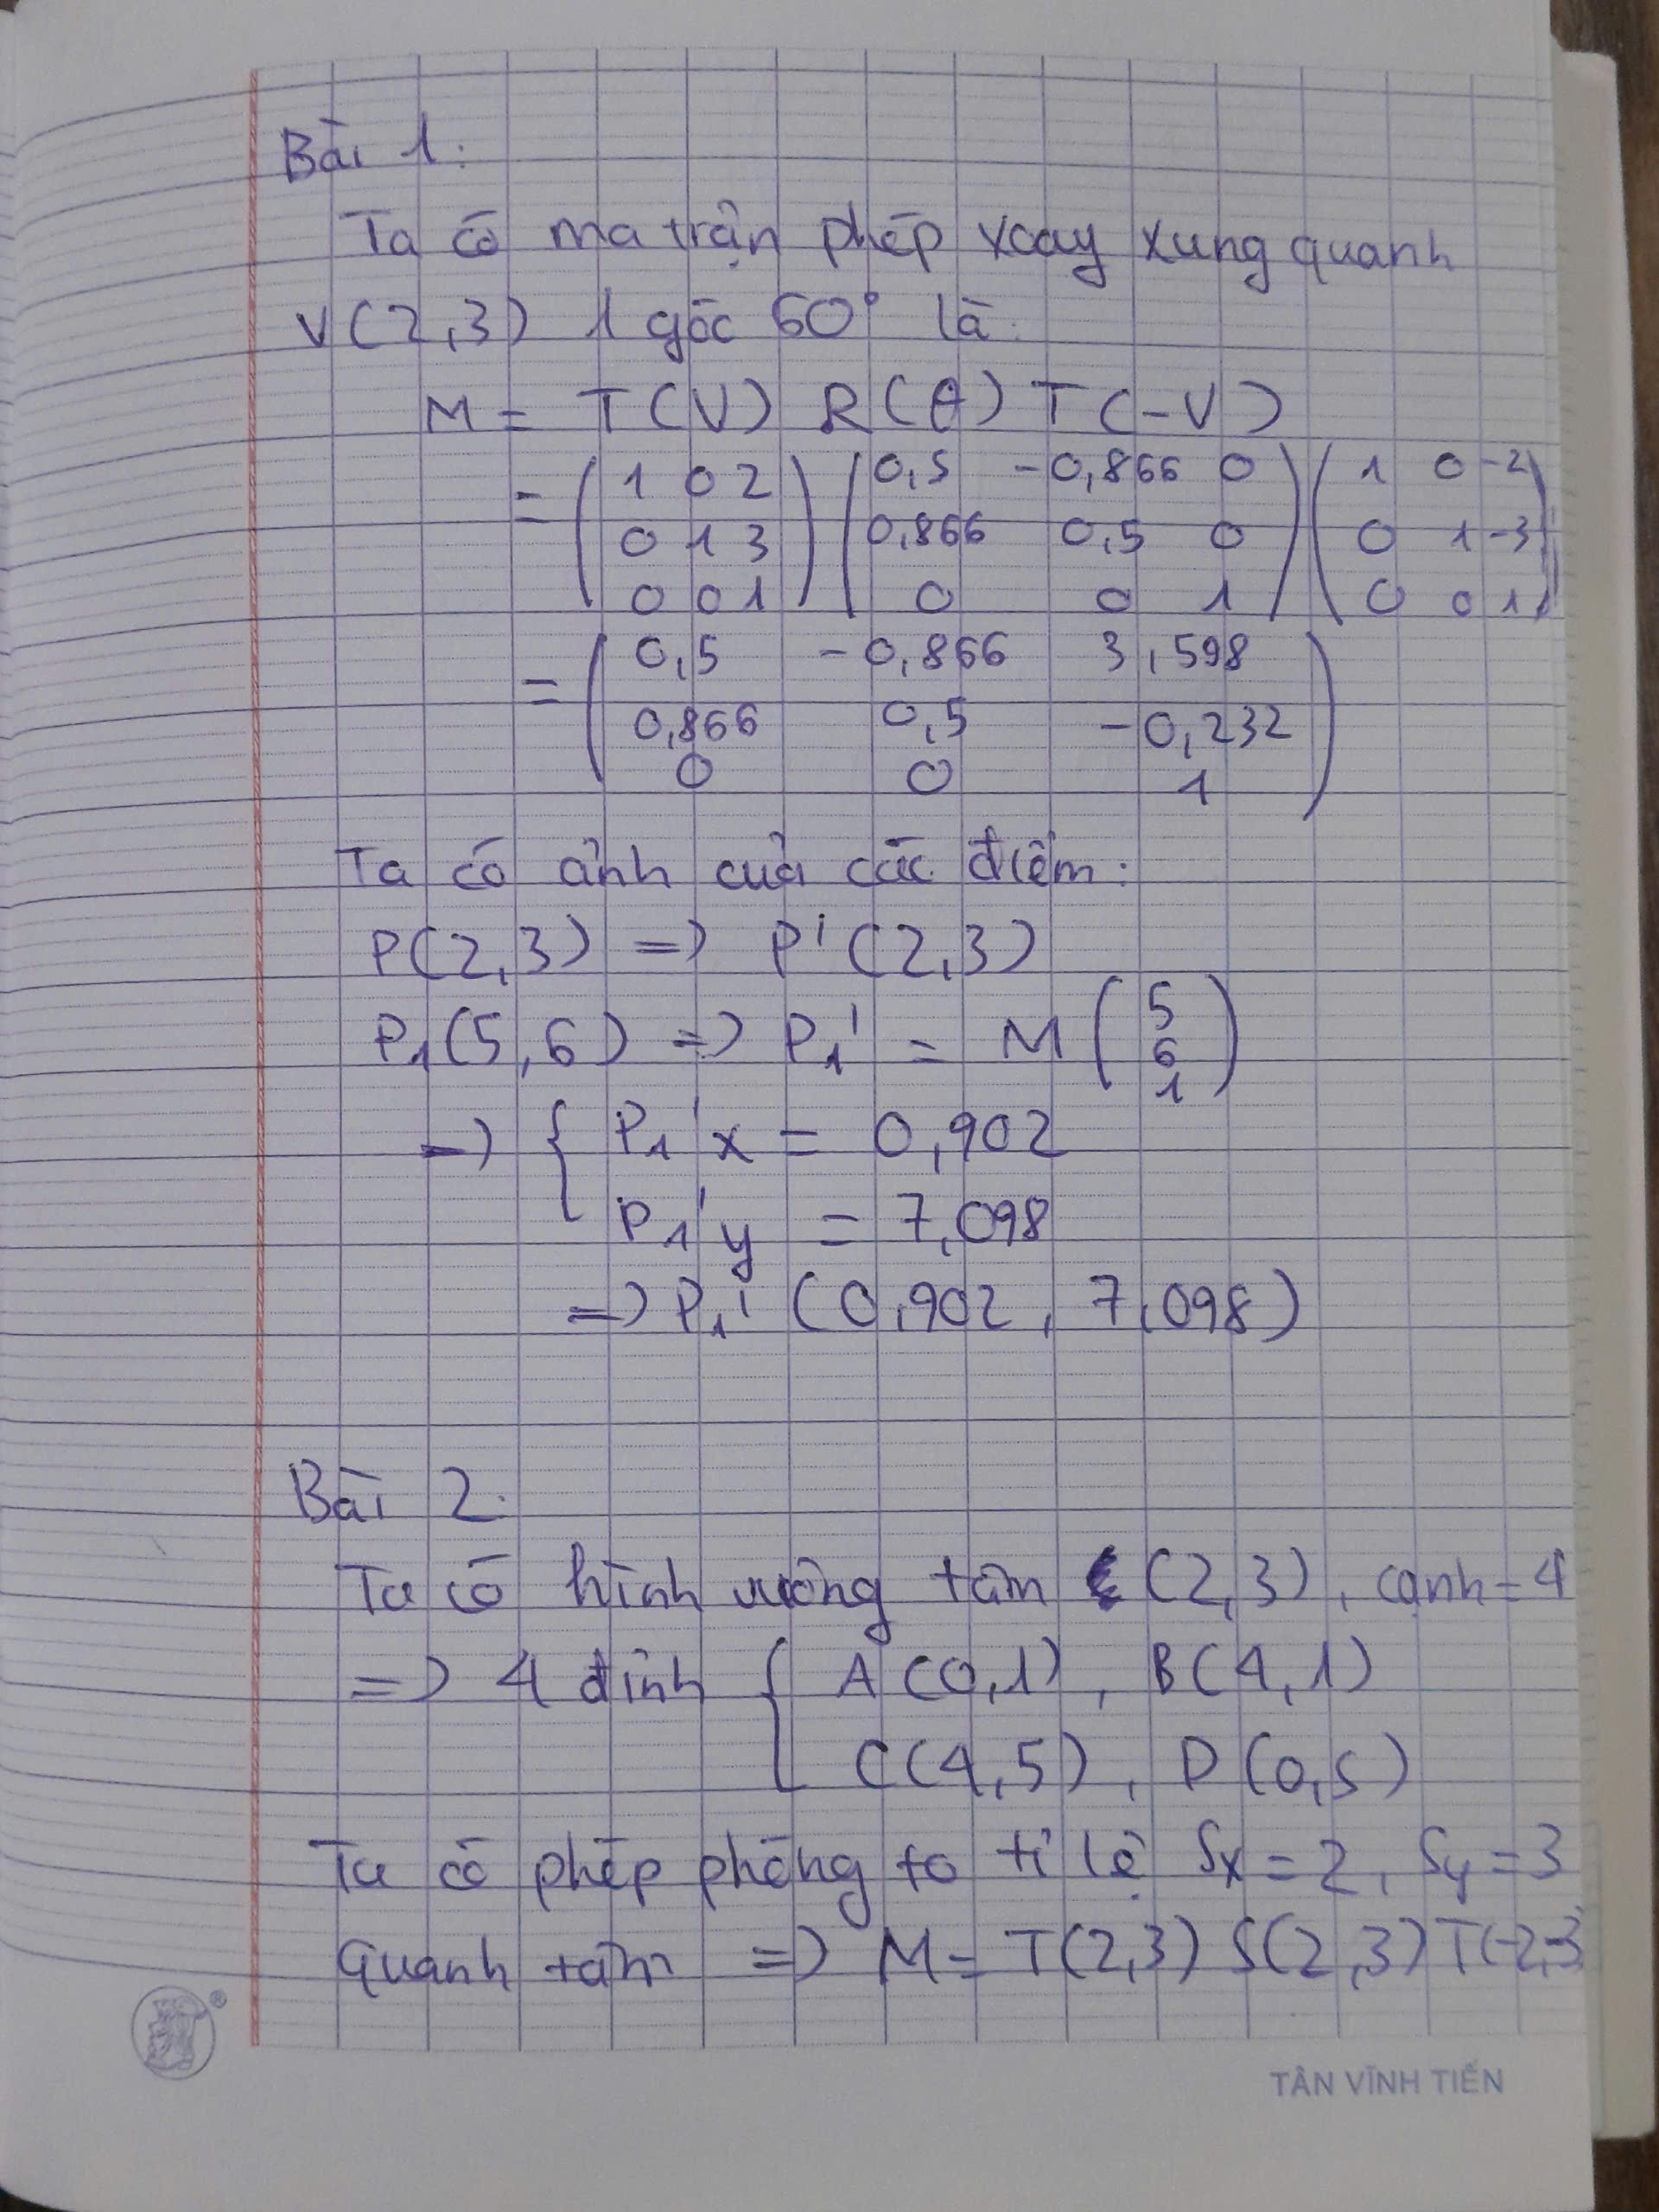 Bài 1:
Ta có ma trận phép xoay xung quanh
V(2,3) 1 góc 60° là:
M = T(V) R(θ) T(-V)
= (1 0 2) (0,5 -0,866 0) (1 0 -2)
(0 1 3) (0,866 0,5 0) (0 1 -3)
(0 0 1) (0 0 1) (0 0 1)
= (0,5 -0,866 3,598)
(0,866 0,5 -0,232)
(0 0 1)
Ta có ảnh của các điểm:
P(2,3) => P'(2,3)
P₁(5,6) => P₁' = M (5
6
1)
=> { P₁'x = 0,902
P₁'y = 7,098
=> P₁' (0,902, 7,098)
Bài 2:
Ta có hình vuông tâm (2,3), cạnh = 4
=> 4 đỉnh { A(0,1), B(4,1)
C(4,5), D(0,5)
Ta có phép phóng to tỉ lệ Sx = 2, Sy = 3
quanh tâm => M = T(2,3) S(2,3) T(-2,-3
TÂN VĨNH TIẾN
®